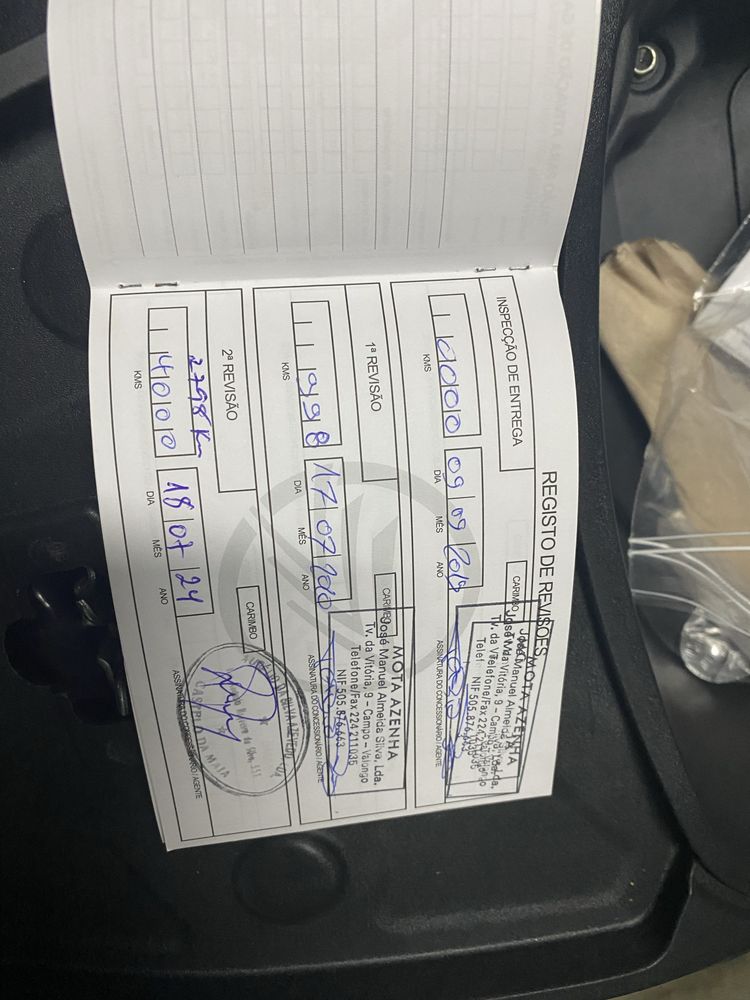 REGISTO DE REVISÕES
INSPECÇÃO DE ENTREGA
CARIMBO
0000
09 09
KMS
DIA
MÊS
ANO
MOTA AZENHA
José Manuel Almeida
Tv. da Vitória, 9 - Campo
Telefone/Fax 224 211 035
NIF 505.876.663
ASSINATURA DO CONCESSIONÁRIO / AGENTE
1ª REVISÃO
CARIMBO
998
17 07
KMS
DIA
MÊS
ANO
MOTA AZENHA
José Manuel Almeida Silva, Lda.
Tv. da Vitória, 9 - Campo - Valongo
Telefone/Fax 224 211 035
NIF 505.876.663
ASSINATURA DO CONCESSIONÁRIO / AGENTE
2ª REVISÃO
CARIMBO
2798 Km
4000
18 07 24
KMS
DIA
MÊS
ANO
DA SILVA AZEVEDO
CASTELO DA MAIA
ASSINATURA DO CONCESSIONÁRIO / AGENTE